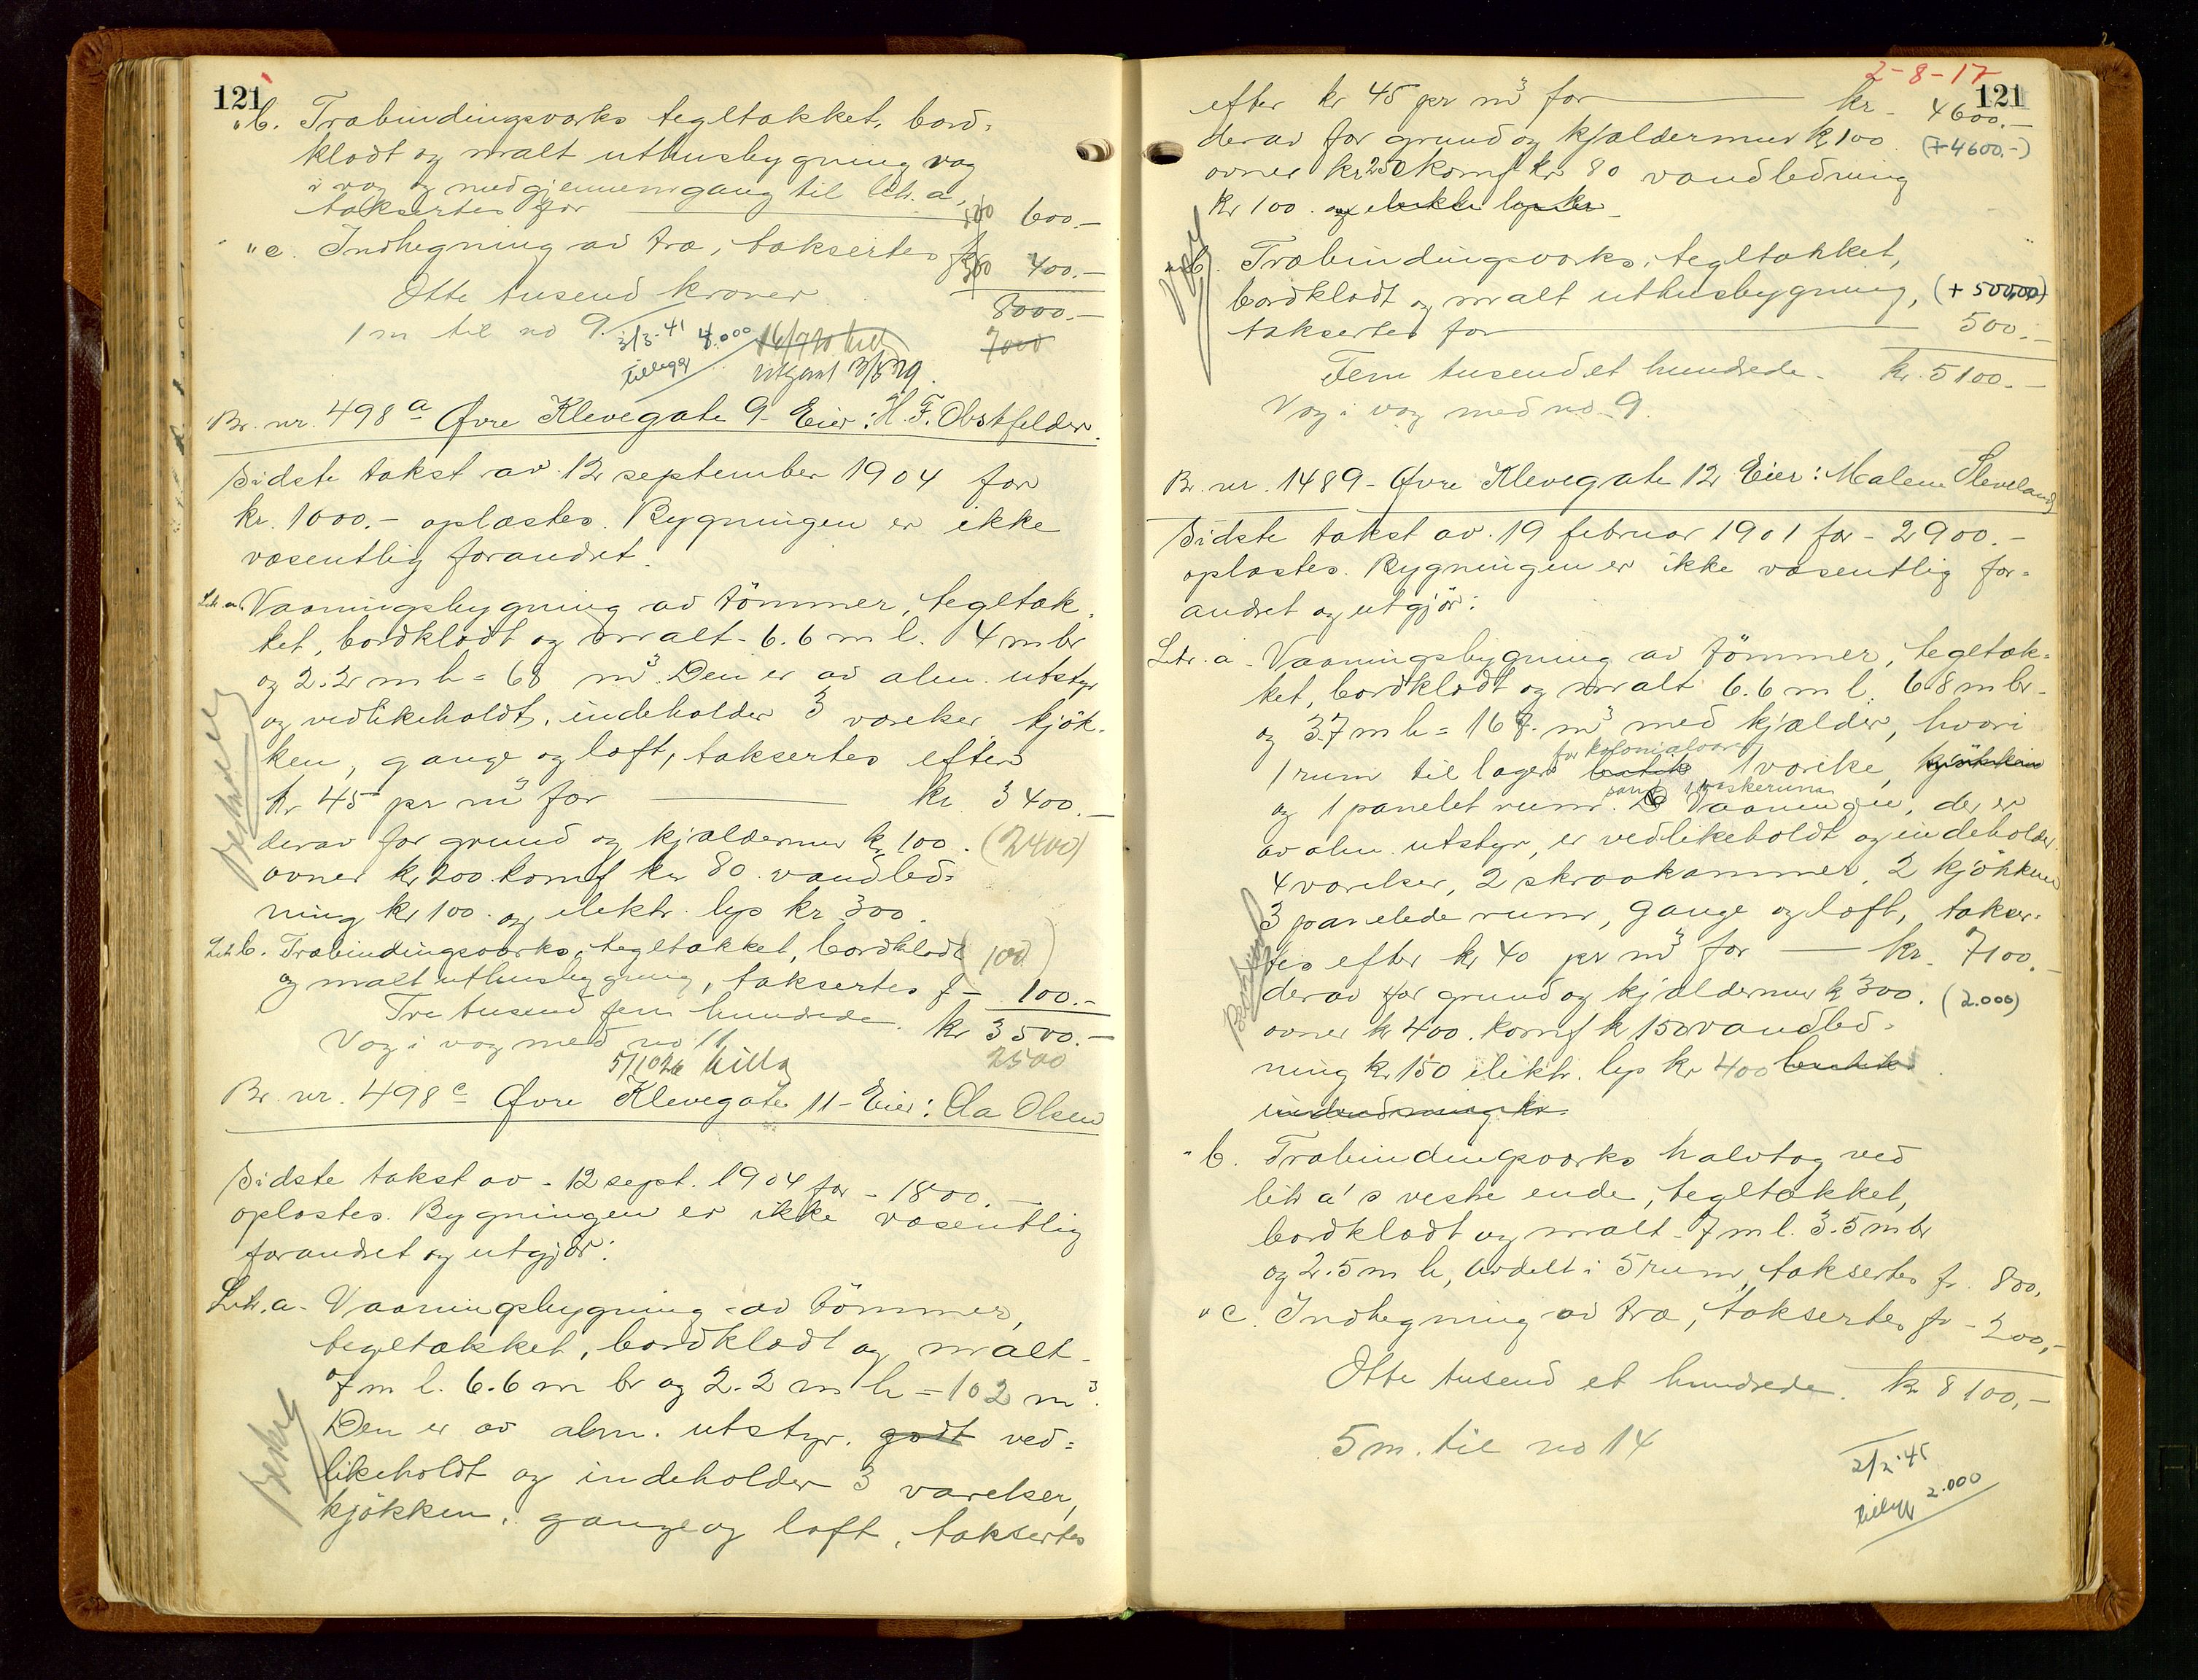 121
"b. Træbindingsverks tegltækket, bord-
klædt og malt uthusbygning væg
i væg og med gjennemgang til litr. a,
taksertes for 600.-
"c. Indhegning av træ, taksertes fr 400.-
Otte tusend kroner 8000.-
1 m til no 9. 7000
3/3-41 4.000
tillegg
Br. nr. 498 a Øvre Klevegate 9 - Eier: H. F. Obstfelder.
Sidste takst av 12 september 1904 for
kr. 1000.- oplæstes. Bygningen er ikke
væsentlig forandret.
Litr. a. Vaaningsbygning av tømmer, tegltæk-
ket, bordklædt og malt - 6.6 m l. 4 m br
og 2.2 m h = 68 m³. Den er av alm. utstyr
og vedlikeholdt, indeholder 3 værelser, kjøk-
ken, gange og loft, taksertes efter
kr 45 pr m³ for kr 3400.-
derav for grund og kjældermur kr 100. (2400)
ovner kr 200 komf kr 80 vandled-
ning kr 100. og elektr. lys kr 300.
Litr b. Træbindingsverks, tegltækket, bordklædt (100)
og malt uthusbygning, taksertes f - 100.-
Tre tusend fem hundrede. kr 3500.-
Væg i væg med no 11 2500
Br. nr. 498 c Øvre Klevegate 11 - Eier: Ola Olsen
Sidste takst av - 12 sept. 1904 for - 1800.-
oplæstes. Bygningen er ikke væsentlig
forandret og utgjør:
Litr. a - Vaaningsbygning av tømmer,
tegltækket, bordklædt og malt -
7 m l. 6.6 m br og 2.2 m h = 102 m³.
Den er av alm. utstyr. godt ved-
likeholdt og indeholder 3 værelser,
kjøkken, gange og loft, taksertes
2-8-17
121
efter kr 45 pr m³ for kr - 4600.-
derav for grund og kjældermur kr 100. (+4600.-)
ovner kr 250 komf kr 80 vandledning
kr 100. og elektr lys kr
"b. Træbindingsverks, tegltækket,
bordklædt og malt uthusbygning, (+500,00)
taksertes for 500.-
Fem tusend et hundrede - kr. 5100.-
Væg i væg med no 9.
Br. nr. 1489 - Øvre Klevegate 12 Eier: Malene Sleveland
Sidste takst av 19 februar 1901 for - 2900.-
oplæstes. Bygningen er ikke væsentlig for-
andret og utgjør:
Litr. a - Vaaningsbygning av tømmer, tegltæk-
ket, bordklædt og malt 6.6 m l. 6.8 m br -
og 3.7 m h = 167 m³ med kjælder, hvori
for kolonialvarer
1 rum til lager butik 1 værelse, kjøkken
samt 1 vaskerum
og 1 panelet rum. Vaaningen, der er
av alm. utstyr, er vedlikeholdt og indeholder
4 værelser, 2 skraakammer, 2 kjøkken
3 panelede rum, gange og loft, takser-
tes efter kr 40 pr m³ for kr. 7100.-
derav for grund og kjældermur kr 300. (2.000)
ovner kr 400. komf kr 150 vandled-
ning kr 150 elektr. lys kr 400 butik
indredning kr
"b. Træbindingsverks halvtag ved
litr a's vestre ende, tegltækket,
bordklædt og malt - 7 m l. 3.5 m br
og 2.5 m h, avdelt i 5 rum, taksertes fr. 800.
"c. Indhegning av træ, taksertes fr - 200,-
Otte tusend et hundrede. kr 8100,-
5 m. til no 14
2/2-45
tillegg 2.000